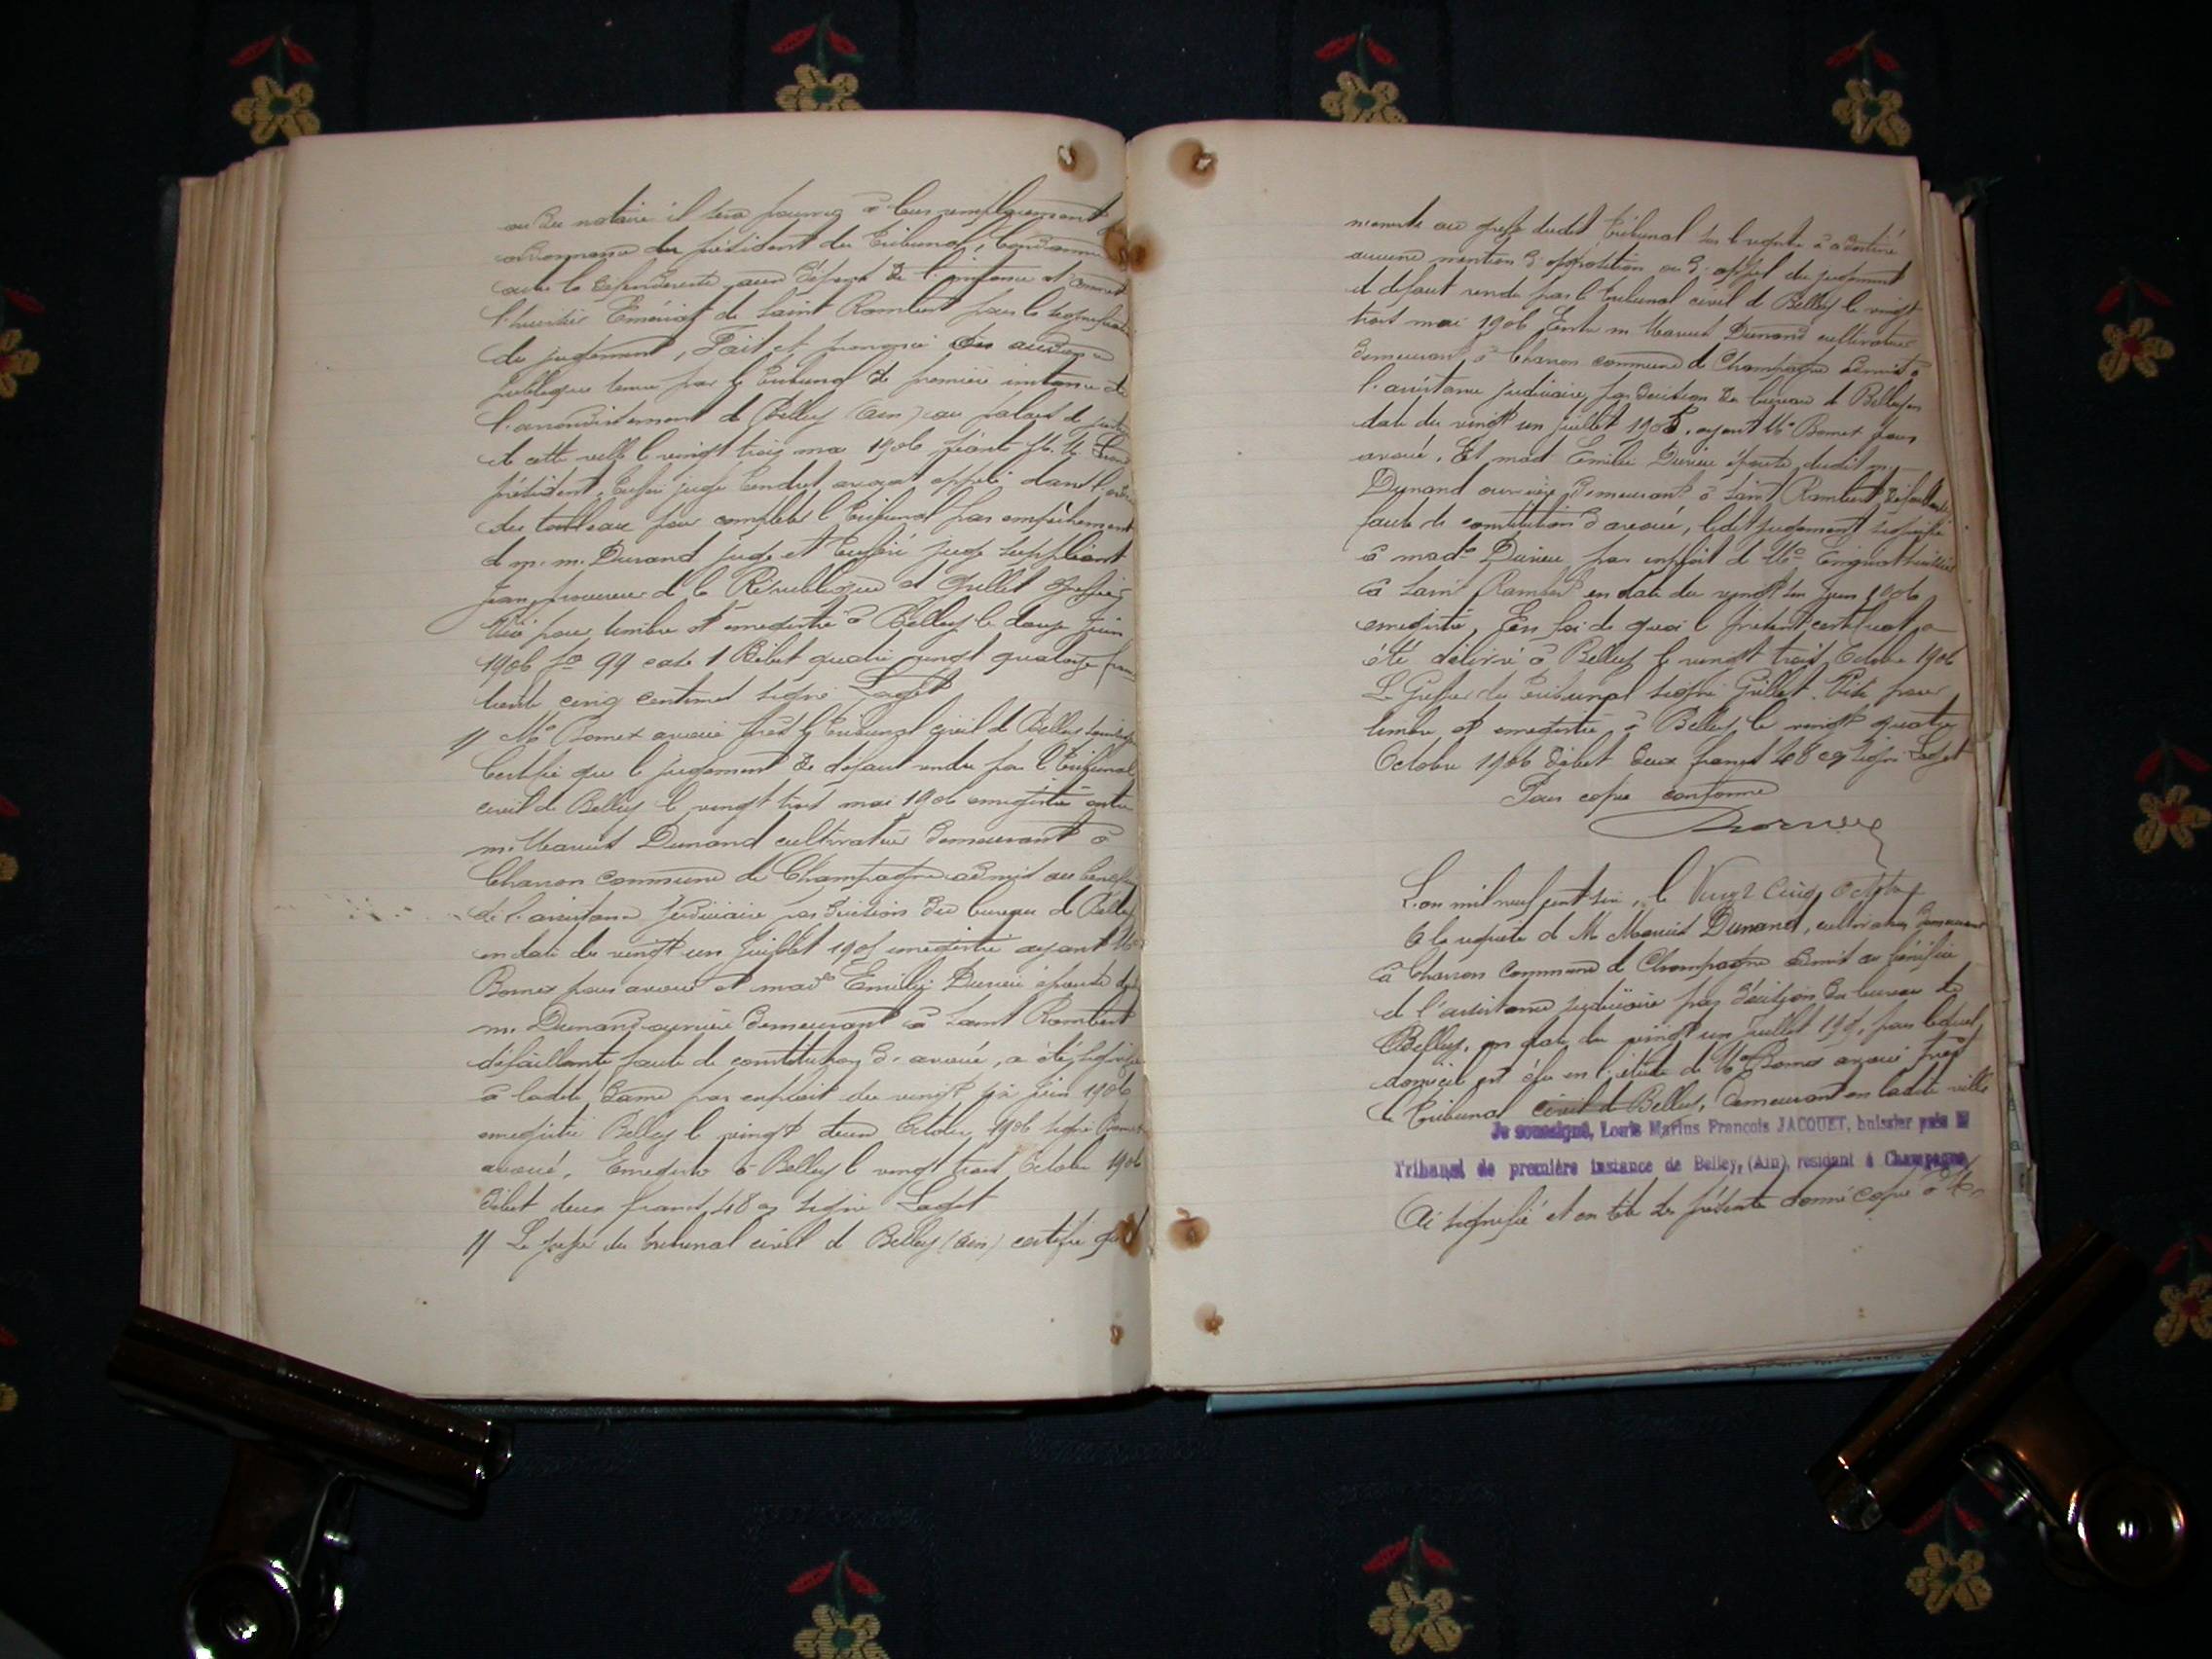 ou du notaire il sera pourvu à leur remplacement
ordonnance du président du Tribunal, Condamne
outre la défenderesse aux dépens de l'instance et commet
l'huissier Eméniat de Saint Rambert pour la signification
du jugement, Fait et prononcé en audience
publique tenue par le Tribunal de première instance de
l'arrondissement de Belley (Ain) au palais de justice
de cette ville le vingt trois mai 1906 séants M. M.
président, juge Cendret avocat appelé dans l'ordre
du tableau pour compléter le Tribunal par empêchement
de m. m. Durand juge et juge suppléant
Jean, procureur de la République et Grillet greffier
Visé pour timbre et enregistré à Belley le douze Juin
1906 fo 99 case 1 Débet quatre vingt quatorze francs
trente cinq centimes signé Laget
1/ Me Bomex avoué près le Tribunal civil de Belley soussigné
Certifie que le jugement de défaut rendu par le Tribunal
civil de Belley le vingt trois mai 1906 enregistré entre
m. Marius Dunand cultivateur demeurant à
Charon commune de Champagne admis au bénéfice
de l'assistance judiciaire par décision du bureau de Belley
en date du vingt un Juillet 1905 enregistré ayant Me
Bomex pour avoué et made Emilie Durieu épouse dudit
m. Dunand ouvrière demeurant à Saint Rambert
défaillante faute de constitution d'avoué, a été signifié
à ladite dame par exploit du vingt six juin 1906
enregistré Belley le vingt deux Octobre 1906 signé Bomex
avoué, Enregistré à Belley le vingt trois Octobre 1906
Débet deux francs 48 cs signé Laget
1/ Le greffier du tribunal civil de Belley (Ain) certifie que
au greffe dudit Tribunal sur le registre à ce destiné
aucune mention d'opposition ou d'appel du jugement
de défaut rendu par le Tribunal civil de Belley le vingt
trois mai 1906 Entre m Marius Dunand cultivateur
demeurant à Charon commune de Champagne admis à
l'assistance judiciaire par décision du bureau de Belley en
date du vingt un juillet 1905, ayant Me Bomex pour
avoué, Et made Emilie Durieu épouse dudit m.
Dunand ouvrière demeurant à Saint Rambert défaillante
faute de constitution d'avoué, ledit jugement signifié
à made Durieu par exploit de Me huissier
à Saint Rambert en date du vingt six Juin 1906
enregistré, En foi de quoi le présent certificat a
été délivré à Belley le vingt trois Octobre 1906
Le Greffier du Tribunal signé Grillet. Visé pour
timbre et enregistré à Belley le vingt quatre
Octobre 1906 Débet deux francs 48 cs signé Laget
Pour copie conforme
L'an mil neuf cent six, le Vingt Cinq Octobre
A la requête de M Marius Dunand, cultivateur demeurant
à Charon commune de Champagne admis au bénéfice
de l'assistance judiciaire par décision du bureau de
Belley, en date du vingt un juillet 1905, pour lequel
domicile est élu en l'étude de Me Bomex avoué près
le Tribunal civil de Belley, demeurant en ladite ville
Je soussigné, Louis Marius François JACQUET, huissier près le
Tribunal de première instance de Belley, (Ain), résidant à Champagne,
Ai signifié et en tête des présentes donné copie à